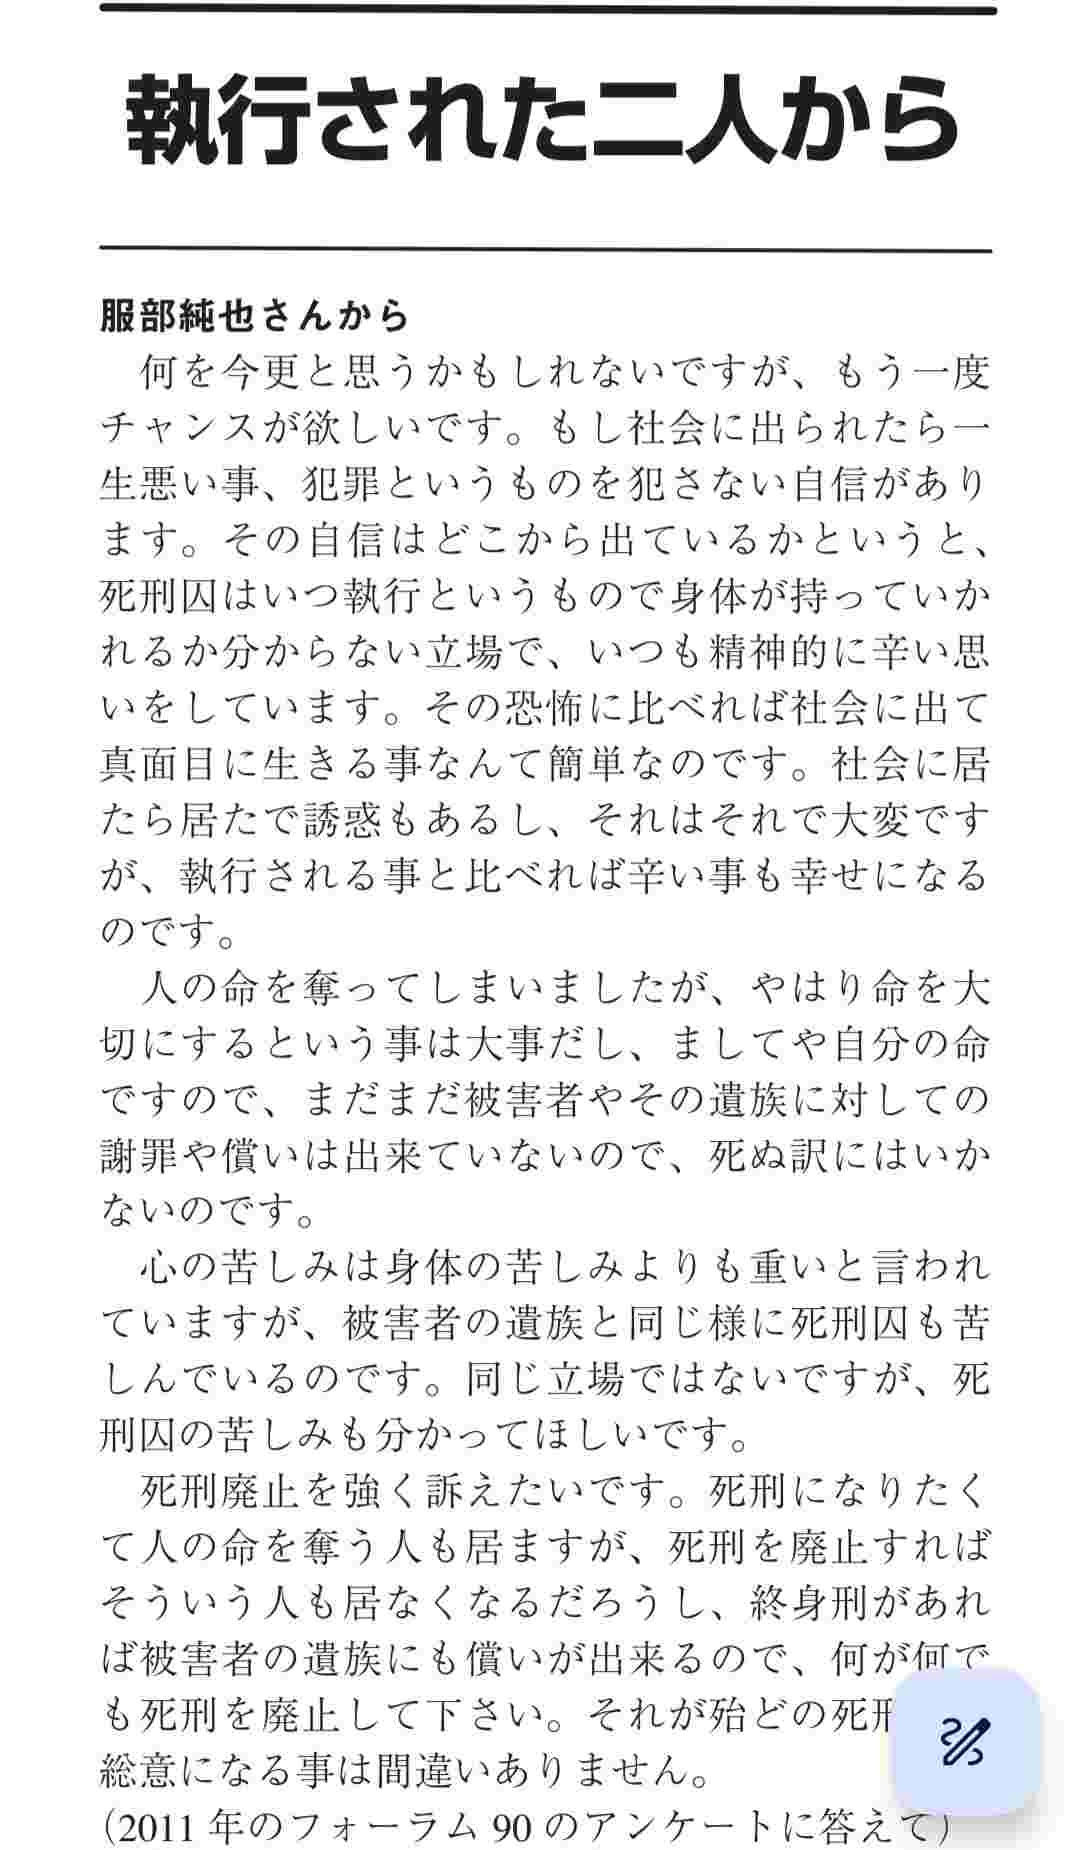 執行された二人から
服部純也さんから
何を今更と思うかもしれないですが、もう一度
チャンスが欲しいです。もし社会に出られたら一
生悪い事、犯罪というものを犯さない自信があり
ます。その自信はどこから出ているかというと、
死刑囚はいつ執行というもので身体が持っていか
れるか分からない立場で、いつも精神的に辛い思
いをしています。その恐怖に比べれば社会に出て
真面目に生きる事なんて簡単なのです。社会に居
たら居たで誘惑もあるし、それはそれで大変です
が、執行される事と比べれば辛い事も幸せになる
のです。
人の命を奪ってしまいましたが、やはり命を大
切にするという事は大事だし、ましてや自分の命
ですので、まだまだ被害者やその遺族に対しての
謝罪や償いは出来ていないので、死ぬ訳にはいか
ないのです。
心の苦しみは身体の苦しみよりも重いと言われ
ていますが、被害者の遺族と同じ様に死刑囚も苦
しんでいるのです。同じ立場ではないですが、死
刑囚の苦しみも分かってほしいです。
死刑廃止を強く訴えたいです。死刑になりたく
て人の命を奪う人も居ますが、死刑を廃止すれば
そういう人も居なくなるだろうし、終身刑があれ
ば被害者の遺族にも償いが出来るので、何が何で
も死刑を廃止して下さい。それが殆どの死刑
総意になる事は間違いありません。
（2011 年のフォーラム 90 のアンケートに答えて）